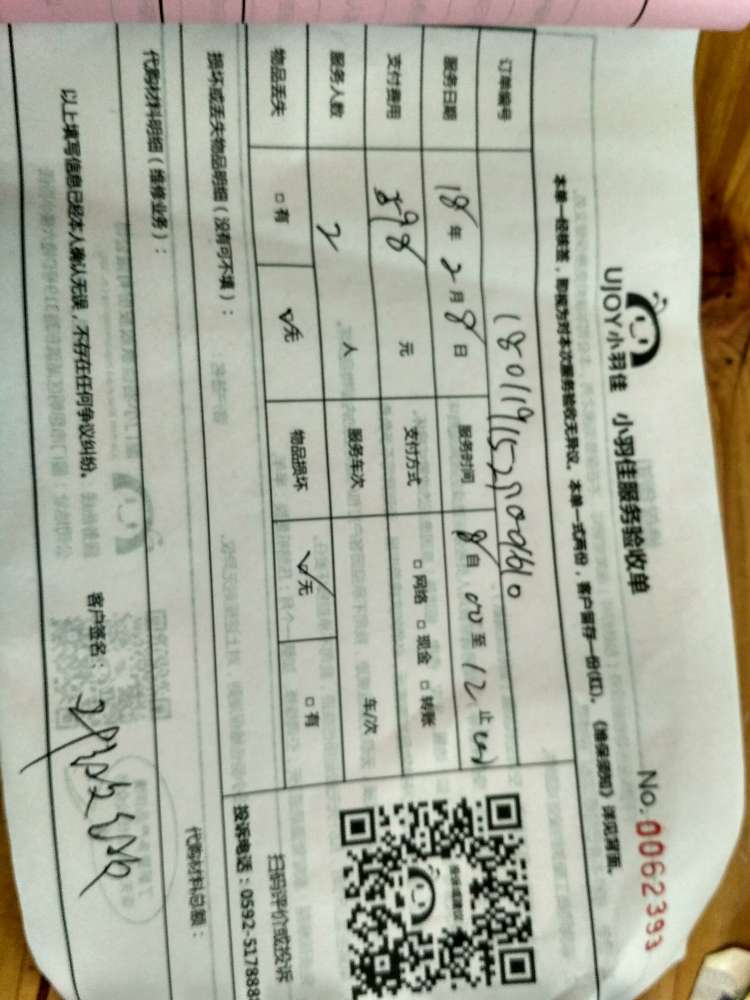 UJOY小羽佳 小羽佳服务验收单
No.0062393
本单一经核签,即视为对本次服务验收无异议。本单一式两份,客户留存一份(红)。《维保须知》详见背面。
订单编号
服务日期 18年2月8日 服务时间 8自00至12止00
支付费用 898元 支付方式 □网络 □现金 □转账
服务人数 2人 服务车次 车/次
物品丢失 □有 ☑无 物品损坏 ☑无 □有
损坏或丢失物品明细(没有可不填):
代购材料明细(维修业务): 代购材料总额:
以上填写信息已经本人确认无误,不存在任何争议纠纷。 客户签名:
扫码评价或投诉
投诉电话:0592-5178888